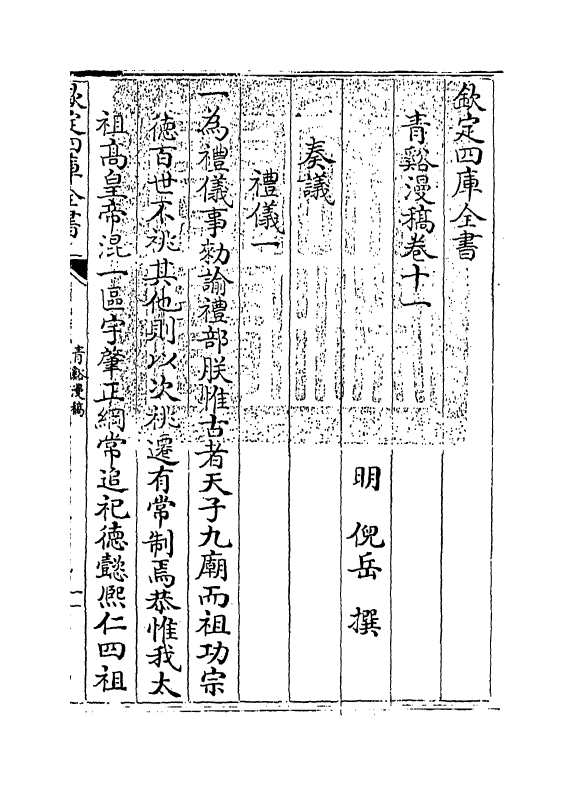 欽定四庫全書
青谿漫稿卷十一
明 倪岳 撰
奏議
禮儀一
一為禮儀事勅諭禮部朕惟古者天子九廟而祖功宗
德百世不祧其他則以次祧遷有常制焉恭惟我太
祖高皇帝混一區宇肇正綱常追祀德懿熈仁四祖
欽定四庫全書
青谿漫稿
一